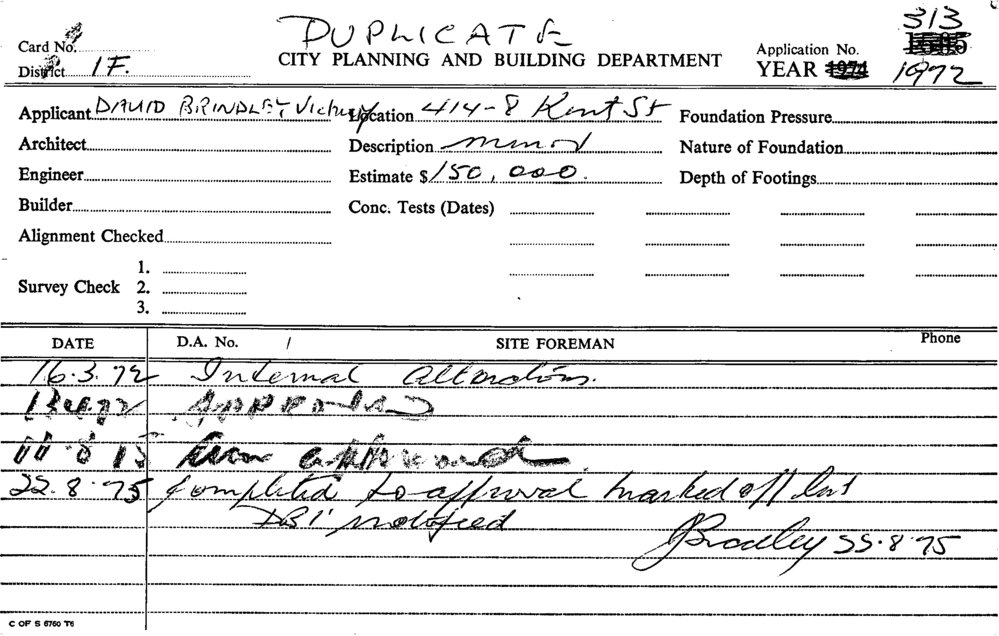 DUPLICATE
313
Card No.
CITY PLANNING AND BUILDING DEPARTMENT
Application No. 1585
District 1F.
YEAR 1974 1972
Applicant DAVID BRINDLEY Victory Location 414-8 Kent St Foundation Pressure
Architect Description Nature of Foundation
Engineer Estimate $150,000. Depth of Footings
Builder Conc. Tests (Dates)
Alignment Checked
1.
Survey Check 2.
3.
DATE D.A. No. / SITE FOREMAN Phone
16.3.72 Internal Alterations.
APPROVED
approved
22.8.75 Completed to approval marked off list
DBI notified
JBradley 22.8.75
C OF S 6760 T6